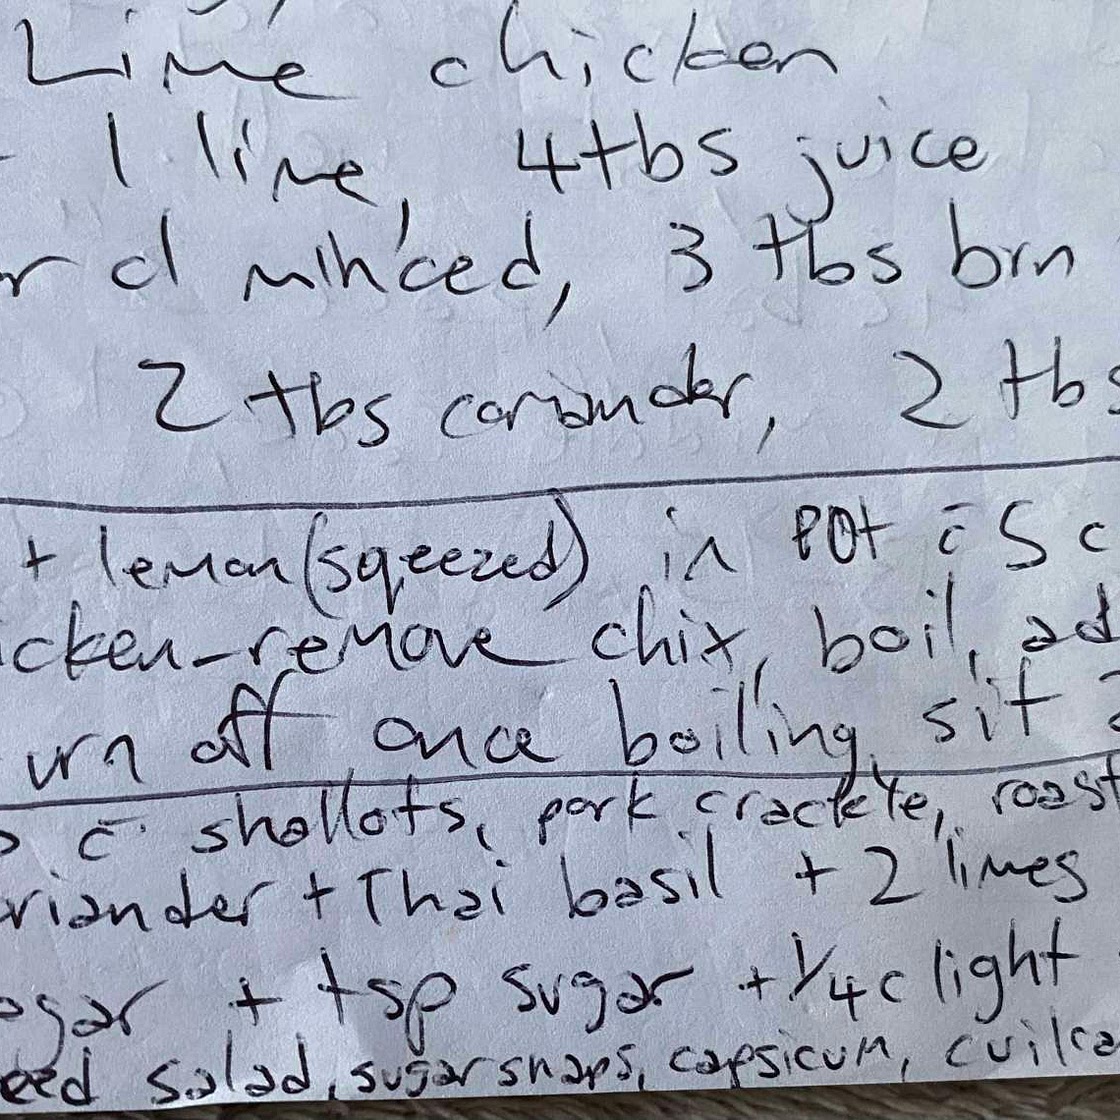 Lime chicken
1 lime, 4tbs juice
minced, 3 tbs brn
2 tbs coriander, 2 tbs
+ lemon (sqeezed) in POt c̄ 5 c
icken - remove chix, boil, ad
urn off once boiling, sit
c̄ shallots, pork crackle, roast
riander + Thai basil + 2 limes
egar + tsp sugar + 1/4c light
eed salad, sugarsnaps, capsicum,